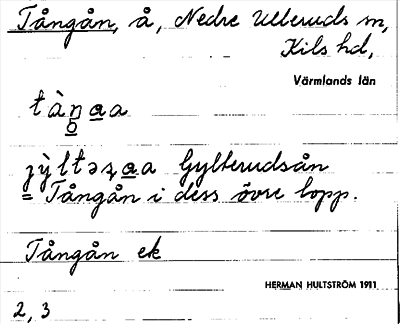 Tångån, å, Nedre Ulleruds sn,
Kils hd,
Värmlands län
Gylterudsån
= Tångån i dess övre lopp.
Tångån ek
HERMAN HULTSTRÖM 1911
2, 3